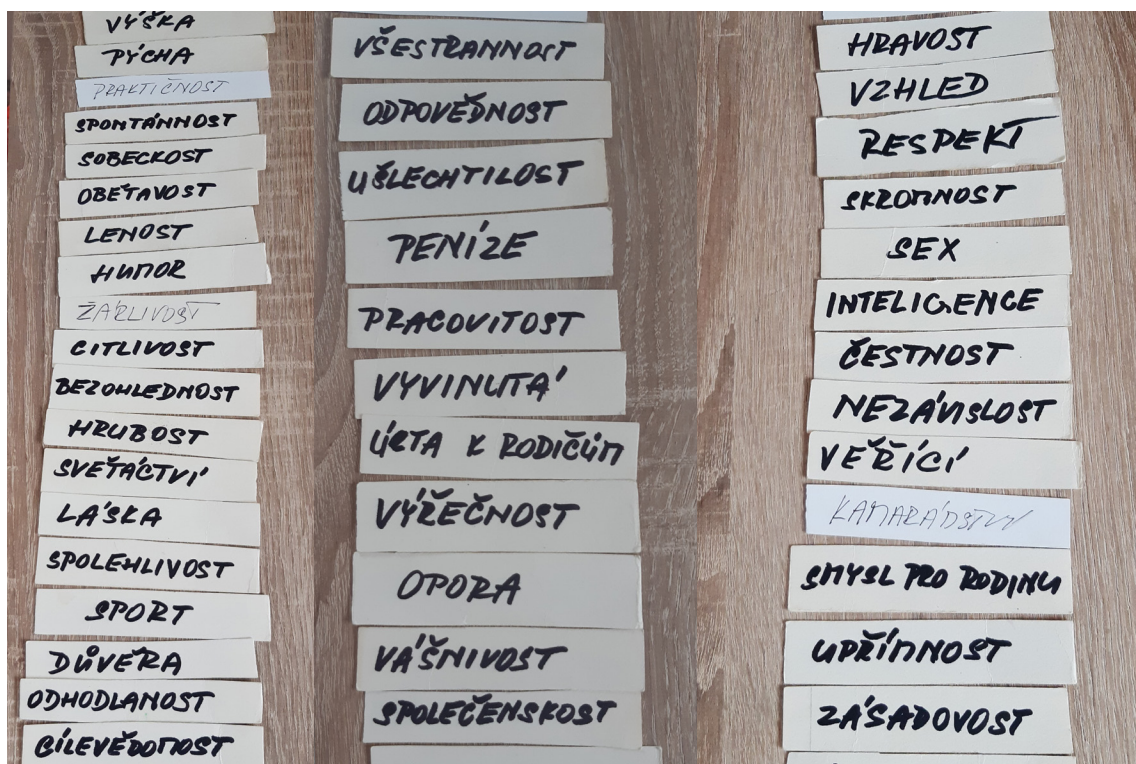 VÝŠKA
PÝCHA
PRAKTIČNOST
SPONTÁNNOST
SOBECKOST
OBĚTAVOST
LENOST
HUMOR
ŽÁRLIVOST
CITLIVOST
BEZOHLEDNOST
HRUBOST
SVĚTÁCTVÍ
LÁSKA
SPOLEHLIVOST
SPORT
DŮVĚRA
ODHODLANOST
CÍLEVĚDOMOST
VŠESTRANNOST
ODPOVĚDNOST
UŠLECHTILOST
PENÍZE
PRACOVITOST
VYVINUTÁ
ÚCTA K RODIČŮM
VÝŘEČNOST
OPORA
VÁŠNIVOST
SPOLEČENSKOST
HRAVOST
VZHLED
RESPEKT
SKROMNOST
SEX
INTELIGENCE
ČESTNOST
NEZÁVISLOST
VEŘÍCÍ
KAMARÁDSTVÍ
SMYSL PRO RODINU
UPŘÍMNOST
ZÁSADOVOST